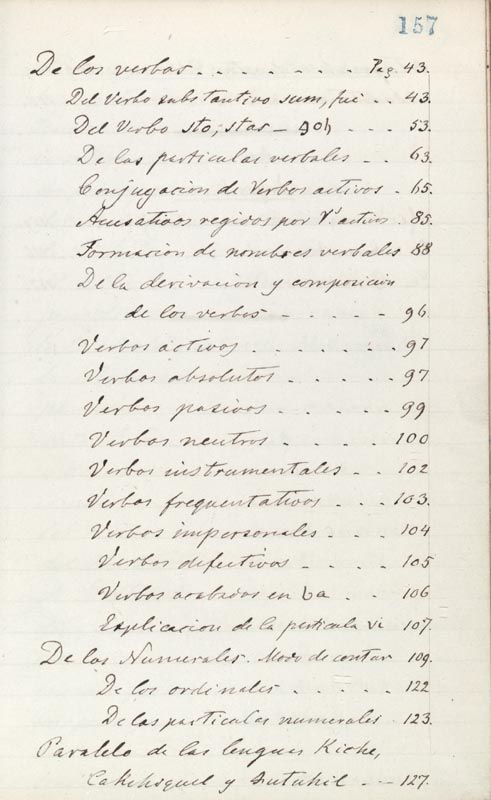 157
De los verbos . . . . . . . Pag 43.
Del Verbo substantivo sum, fui . . 43.
Del Verbo sto, stas – goh . . . 53.
De las particulas verbales . . . 63.
Conjugacion de Verbos activos . 65.
Acusativos regidos por Vs activos . 85.
Formacion de nombres verbales 88
De la derivacion y composicion
de los verbos - - - - - 96
Verbos activos . . . . . . . 97
Verbos absolutos . . . . . 97
Verbos pasivos . . . . . 99
Verbos neutros . . . . 100
Verbos instrumentales . . 102
Verbos frequentativos . . . 103.
Verbos impersonales . . . 104
Verbos defectivos . . . . 105
Verbos acabados en ba . . 106
Explicacion de la particula vi 107.
De los Numerales. Modo de contar 109.
De los ordinales . . . . . 122
De las particulas numerales . 123.
Paralelo de las lenguas Kiche,
Cakchiquel y Sutuhil . – – 127.